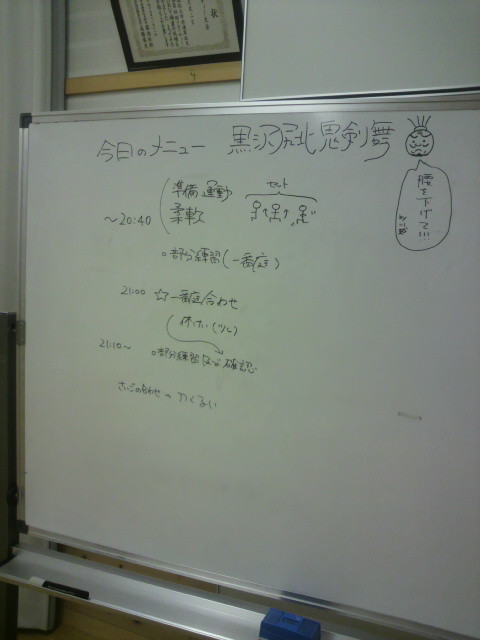 状
今日のメニュー 黒沢尻北鬼剣舞
腰を下げて!!!
準備運動 セット
~20:40 柔軟
○部分練習(一番庭)
21:00 ☆一番庭合わせ
休けい
21:10~ ○部分練習 確認
さいごの合わせ→